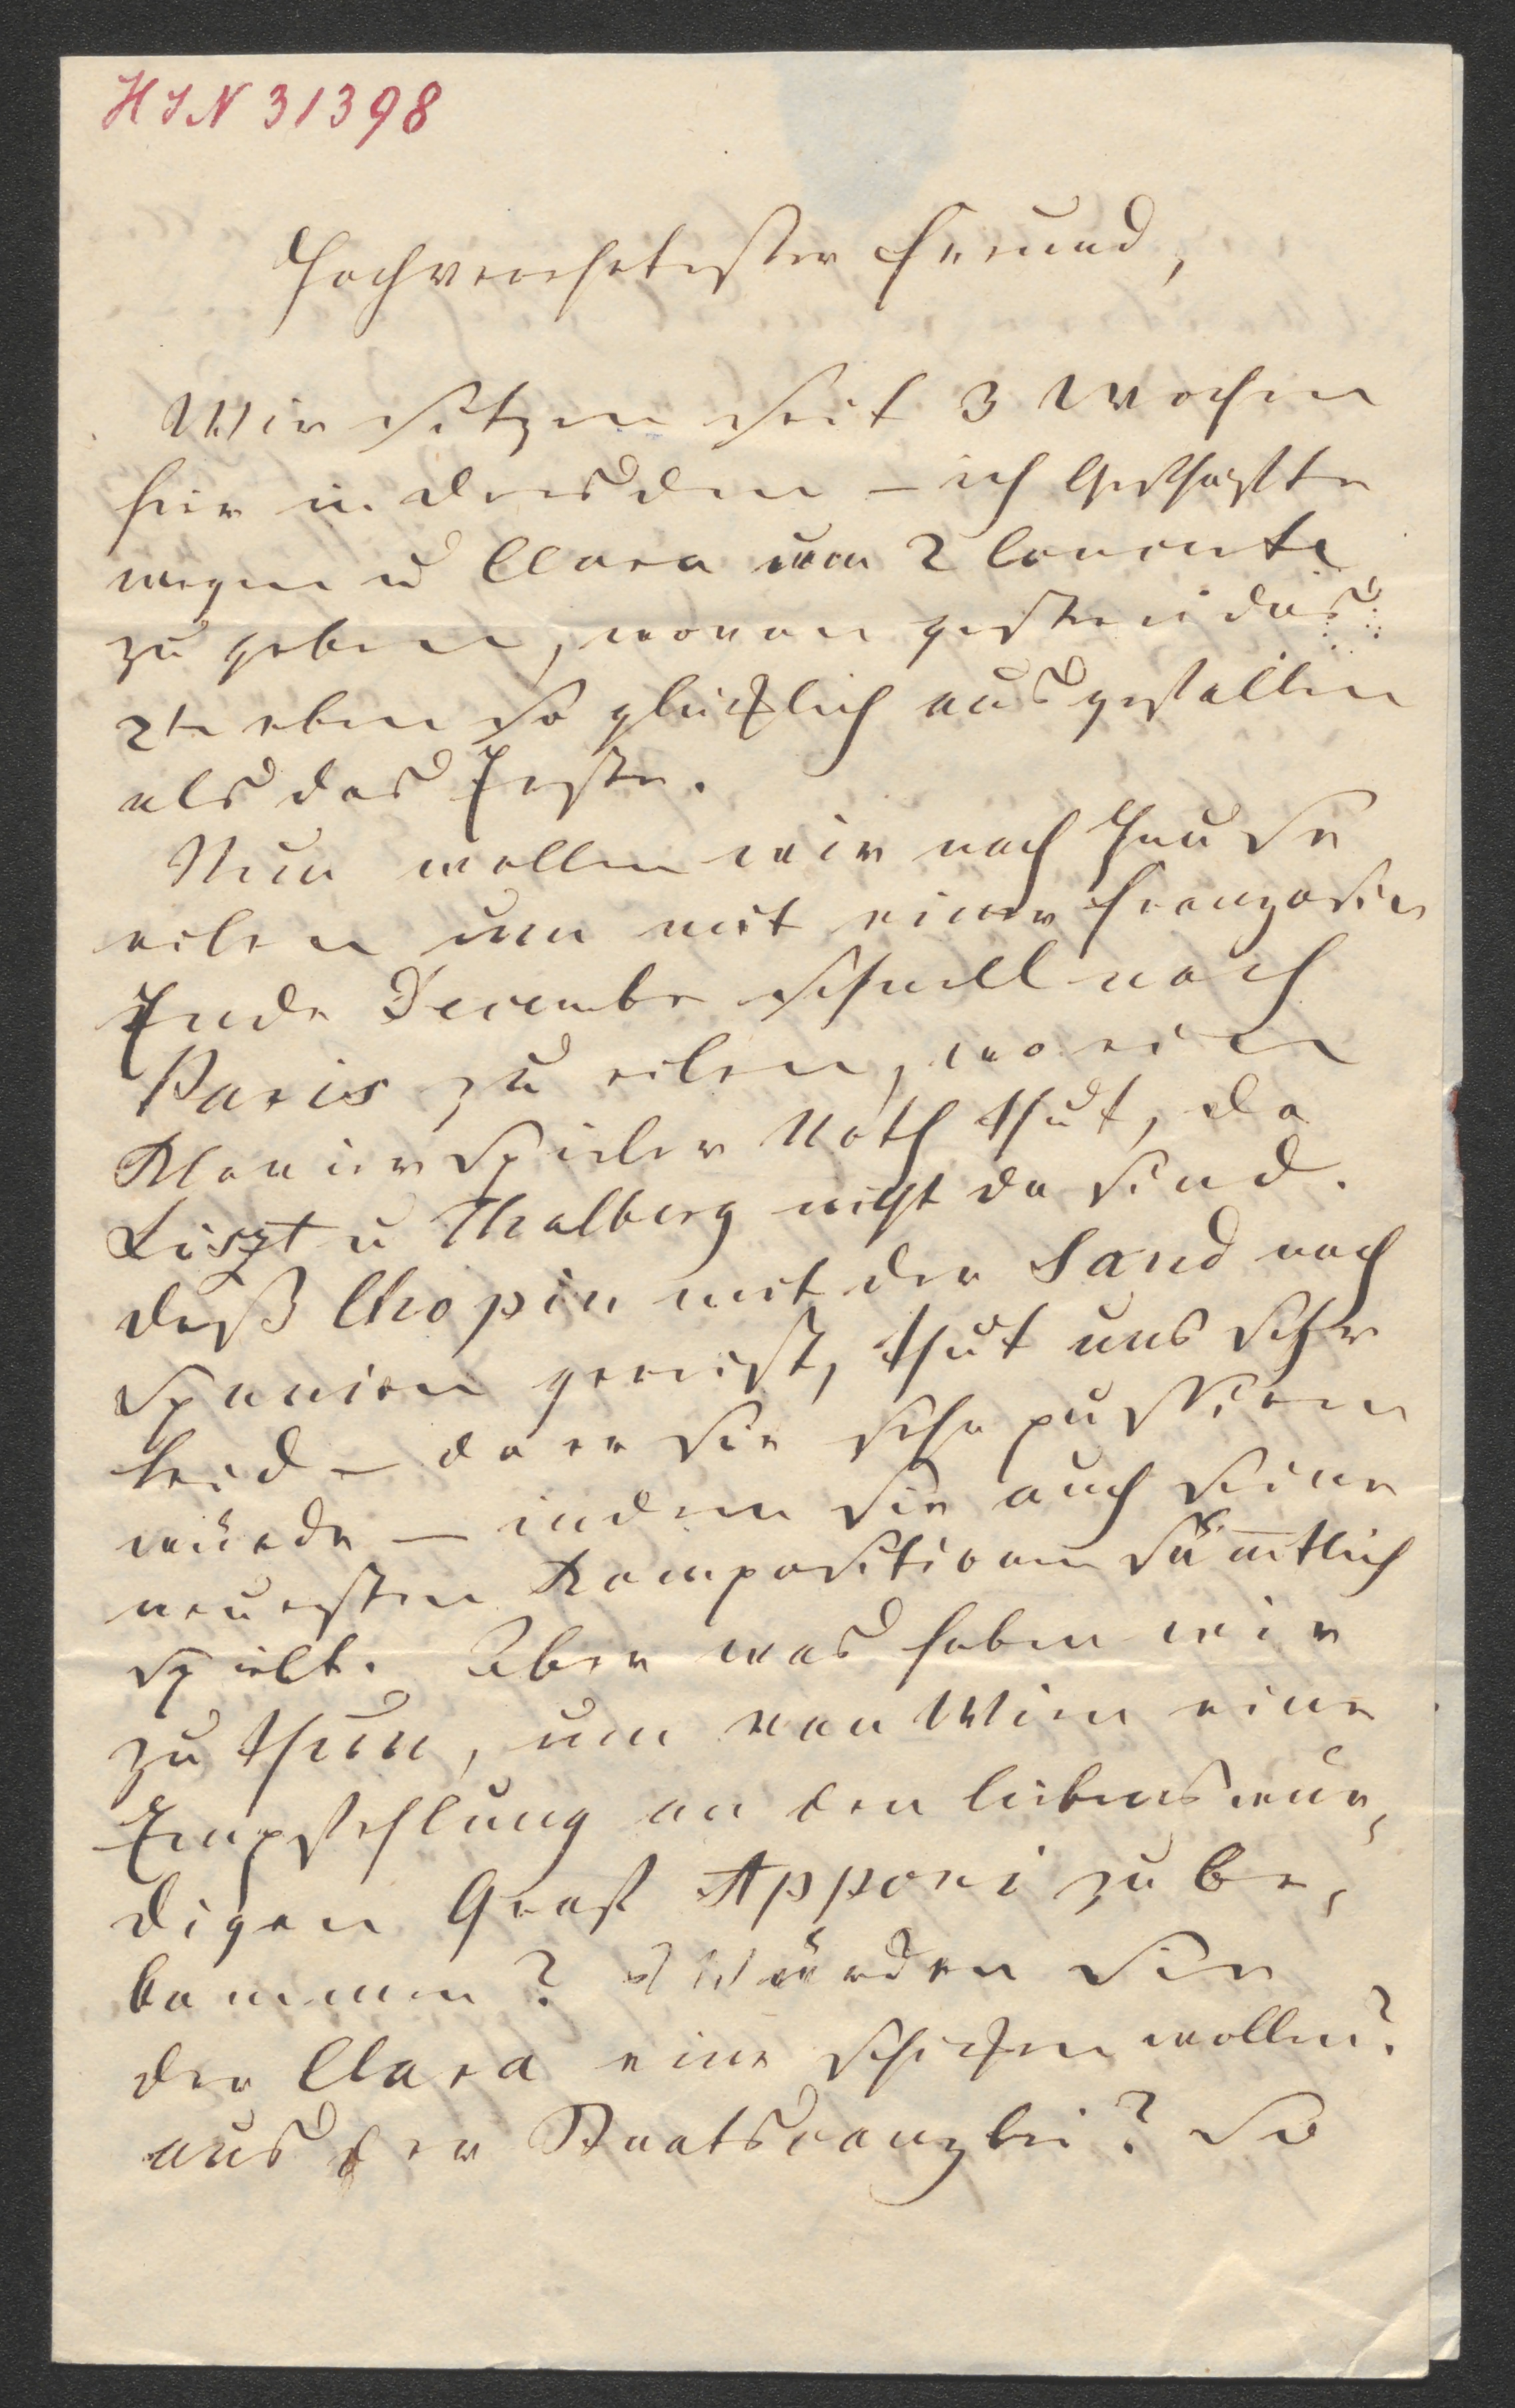 HIN 31398
Hochverehrtester Freund,
Wir sitzen seit 3 Wochen
hier in Dresden – ich Geschäfte
wegen u Clara um 2 Concerte
zu geben, wovon gestern das
2te eben so glücklich ausgefallen
als das Erste.
Nun wollen wir nach Hause
eilen um mit einer Französin
Ende Decembr schnell nach
Paris zu eilen, wo ein
Klavierspieler Noth thut, da
Liszt u Thalberg nicht da sind.
Daß Chopin mit der Sand nach
Spanien gereist, thut uns sehr
leid – da er sie sehr pussiren
würde – indem sie auch seine
neuesten Kompositionen sämtlich
spielt. Aber was haben wir
zu thun, um von Wien eine
Empfehlung an den liebenswür,
digen Graf Apponi zu be,
kommen? Würden Sie
der Clara eine schicken wollen?
aus der Staatscanzlei? So